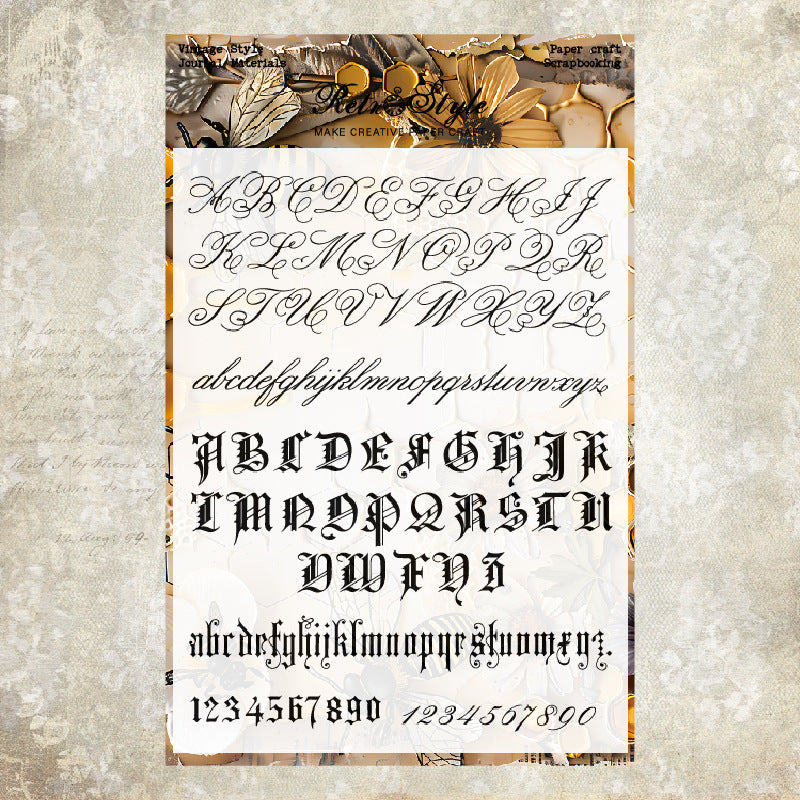 Vintage Style
Journal Materials
Paper craft
Scrapbooking
RetroStyle
MAKE CREATIVE PAPER CRAFT
A B C D E F G H I J
K L M N O P Q R
S T U V W X Y Z
abcdefghijklmnopqrstuvwxyz
A B C D E F G H J K
L M N O P Q R S T U
V W X Y Z
abcdefghijklmnopqrstuvwxyz.
1234567890
1234567890